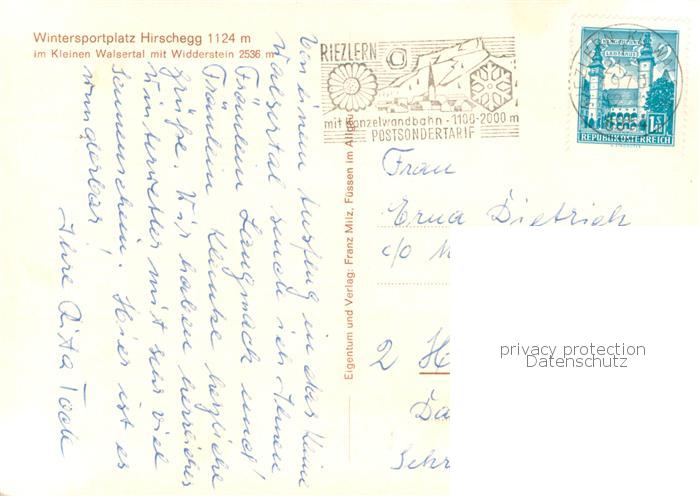 Wintersportplatz Hirschegg 1124 m
im Kleinen Walsertal mit Widderstein 2536 m
Von einem Ausflug in das kleine
Walsertal sende ich Ihnen
Fräulein Langmach und
Fräulein herzliche
Grüße. Wir haben herrliches
Winterwetter mit sehr viel
Sonnenschein. Hier ist es
wunderbar!
Ihre Rita
Eigentum und Verlag: Franz Milz, Füssen im Allgäu
RIEZLERN
mit Kanzelwandbahn - 1100-2000 m
POSTSONDERTARIF
REPUBLIK ÖSTERREICH
Frau
Erna Dietrich
c/o M
2 H
Da
Schr
privacy protection
Datenschutz